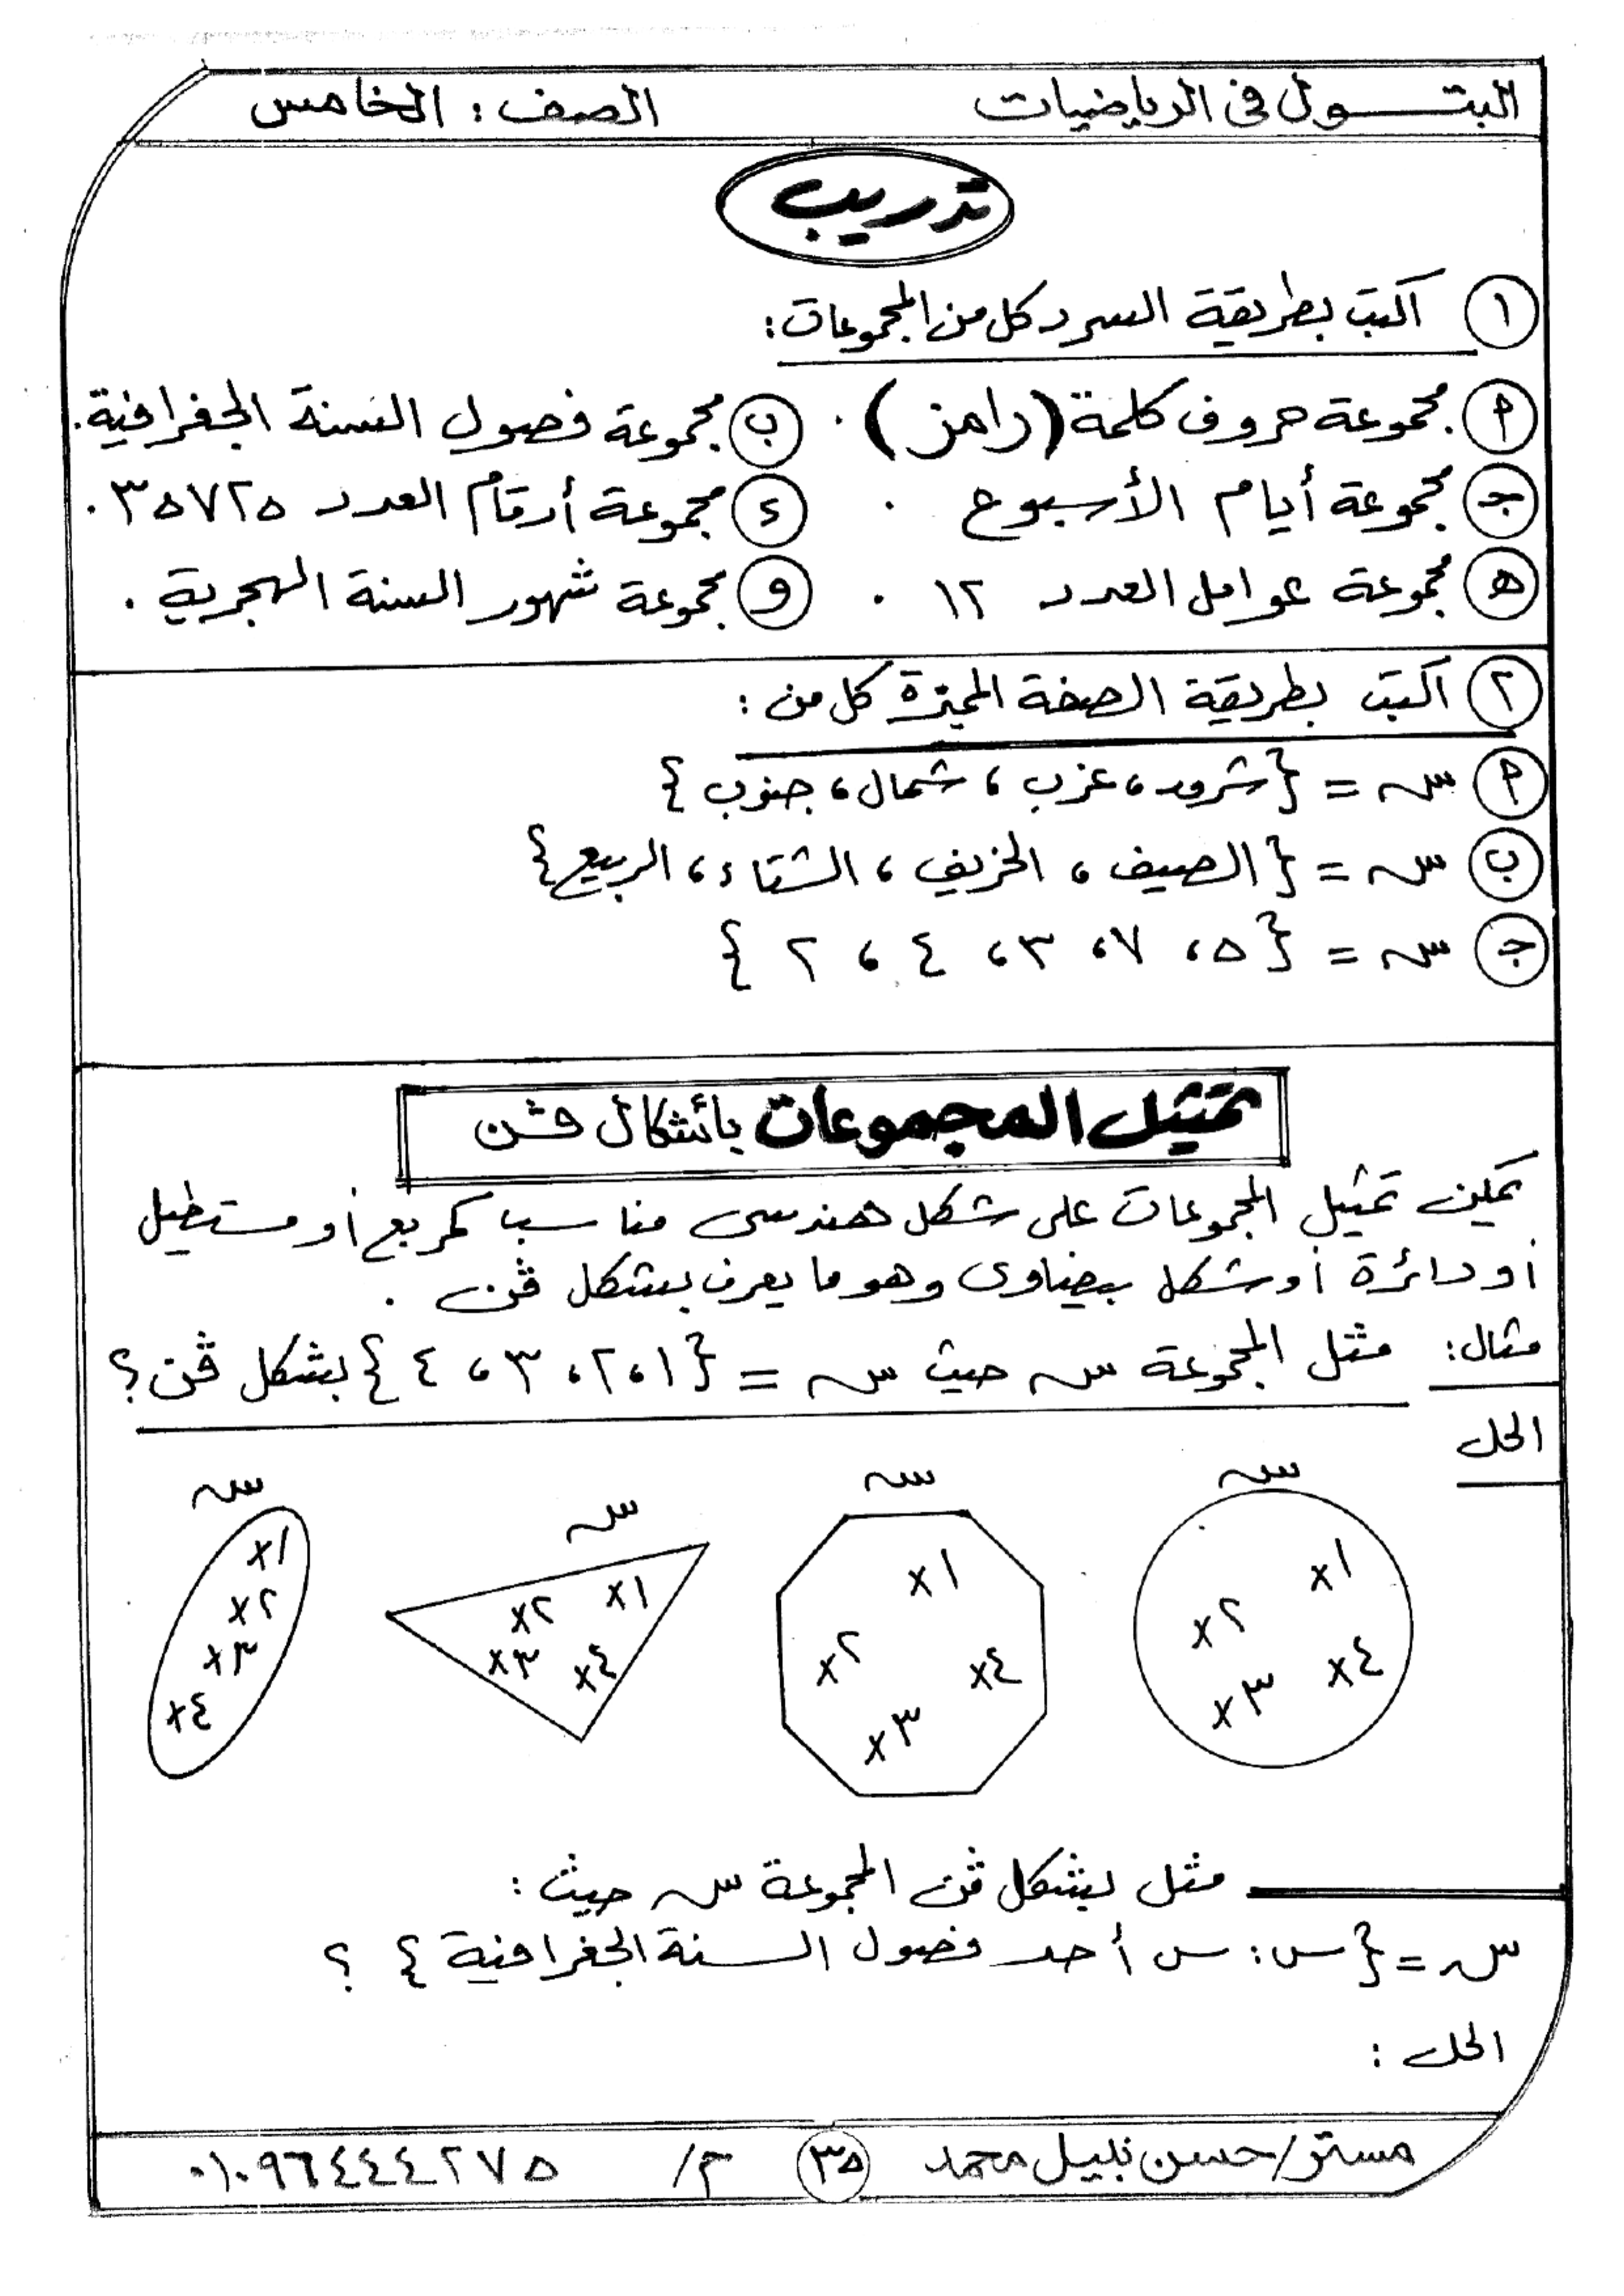 البتــــول فى الرياضيات الصف : الخامس
تدريب
١ اكتب بطريقة السرد كل من المجموعات :
٢ مجموعة حروف كلمة (رامز) . ب مجموعة فصول السنة الجغرافية .
جـ مجموعة أيام الأسبوع . ء مجموعة أرقام العدد ٣٥٧٢٥ .
هـ مجموعة عوامل العدد ١٢ . و مجموعة شهور السنة الهجرية .
٢ اكتب بطريقة الصفة المميزة كل من :
٢ س = { شروق ، غرب ، شمال ، جنوب }
ب س = { الصيف ، الخريف ، الشتاء ، الربيع }
جـ س = { ٥ ، ٧ ، ٣ ، ٤ ، ٢ }
تمثيل المجموعات بأشكال ڤن
يمكن تمثيل المجموعات على شكل هندسى مناسب كمربع أو مستطيل
أو دائرة أو شكل بيضاوى وهو ما يعرف بشكل ڤن .
مثال : مثل المجموعة س حيث س = { ١ ، ٢ ، ٣ ، ٤ } بشكل ڤن ؟
الحل
س س س س
x١ x٢ x٣ x٤
x١ x٢ x٣ x٤
x١ x٢ x٣ x٤
x١ x٢ x٣ x٤
مثل بشكل ڤن المجموعة س حيث :
س = { س : س أحد فصول السنة الجغرافية } ؟
الحل :
مستر/حسن نبيل محمد ٣٥ م/ ٠١٠٩٦٤٤٤٢٧٥